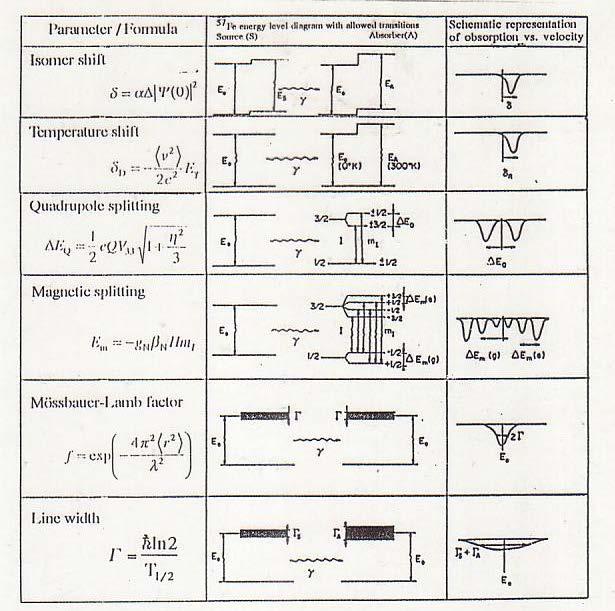 Parameter / Formula
57Fe energy level diagram with allowed transitions
Source (S) Absorber(A)
Schematic representation
of obsorption vs. velocity
Isomer shift
δ = αΔ|Ψ(0)|²
E₀ E_S γ E₀ E_A
δ
Temperature shift
δ_D = -⟨v²⟩/2c² E_γ
E₀ γ E₀ (0°K) E_A (300°K)
Quadrupole splitting
ΔE_Q = 1/2 eQV₃₃ √(1 + η²/3)
E₀ γ 3/2 ±1/2 ±3/2 ΔE_Q
I m_I
1/2 ±1/2
ΔE_Q
Magnetic splitting
E_m = -g_N β_N H m_I
E₀ γ 3/2 +3/2 +1/2 -1/2 -3/2 ΔE_m(e)
I m_I
1/2 -1/2 +1/2 ΔE_m(g)
ΔE_m(g) ΔE_m(e)
Mössbauer-Lamb factor
f = exp(-4π²⟨r²⟩/λ²)
E₀ Γ γ Γ E₀
2Γ
E₀
Line width
Γ = ħln2/T₁/₂
E₀ Γ_S γ Γ_A E₀
Γ_S + Γ_A
E₀